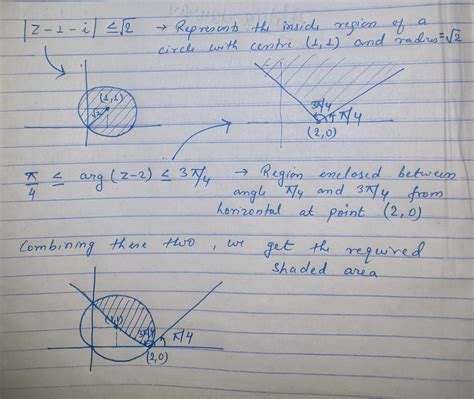 |z-1-i| ≤ √2 → Represents the inside region of a
circle with centre (1,1) and radius=√2
(1,1)
√2
3π/4
π/4
(2,0)
π/4 ≤ arg(z-2) ≤ 3π/4 → Region enclosed between
angle π/4 and 3π/4 from
horizontal at point (2,0)
Combining these two, we get the required
shaded area
(1,1)
3π/4
π/4
(2,0)